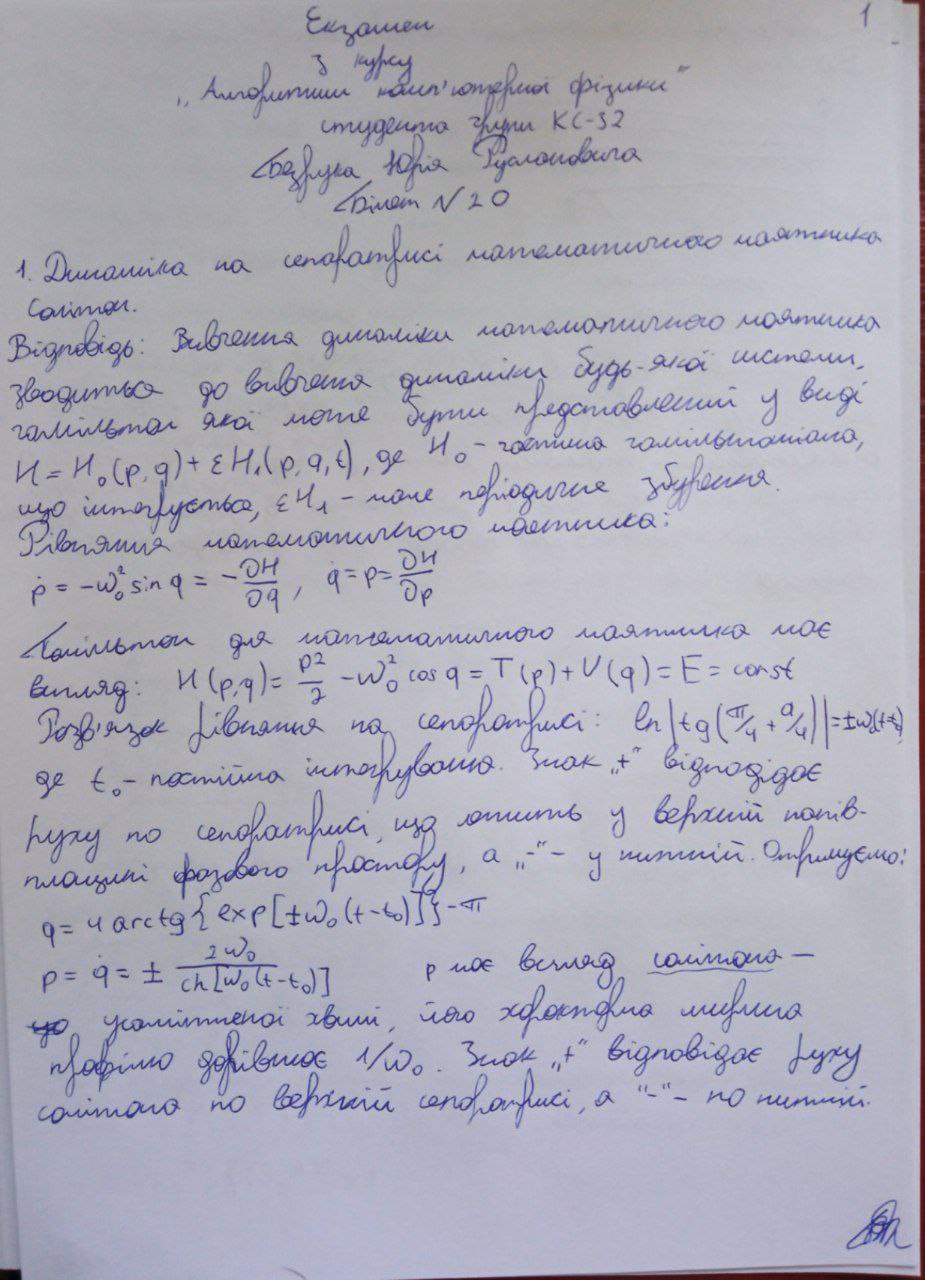 1
Екзамен
з курсу
„Алгоритми комп'ютерної фізики"
студента групи КС-32
Безрука Юрія Руслановича
Білет №20
1. Динаміка на сепаратрисі математичного маятника
Солітон.
Відповідь: Вивчення динаміки математичного маятника
зводиться до вивчення динаміки будь-якої системи,
гамільтон якої може бути представлений у виді
H = H₀(p,q) + εH₁(p,q,t), де H₀ - частина гамільтоніана,
що інтегрується, εH₁ - мале періодичне збурення.
Рівняння математичного маятника:
ṗ = -ω₀² sin q = -∂H/∂q, q̇ = p = ∂H/∂p
Гамільтон для математичного маятника має
вигляд: H(p,q) = p²/2 - ω₀² cos q = T(p) + V(q) = E = const
Розв'язок рівняння на сепаратрисі: ln|tg(π/4 + q/4)| = ±ω₀(t-t₀)
де t₀ - постійна інтегрування. Знак „+" відповідає
руху по сепаратрисі, що лежить у верхній напів-
площині фазового простору, а „-" - у нижній. Отримуємо:
q = 4 arctg{exp[±ω₀(t-t₀)]} - π
p = q̇ = ± 2ω₀/ch[ω₀(t-t₀)] p має вигляд солітона —
усамітненої хвилі, його характерна ширина
профілю дорівнює 1/ω₀. Знак „+" відповідає руху
солітона по верхній сепаратрисі, а "-" - по нижній.